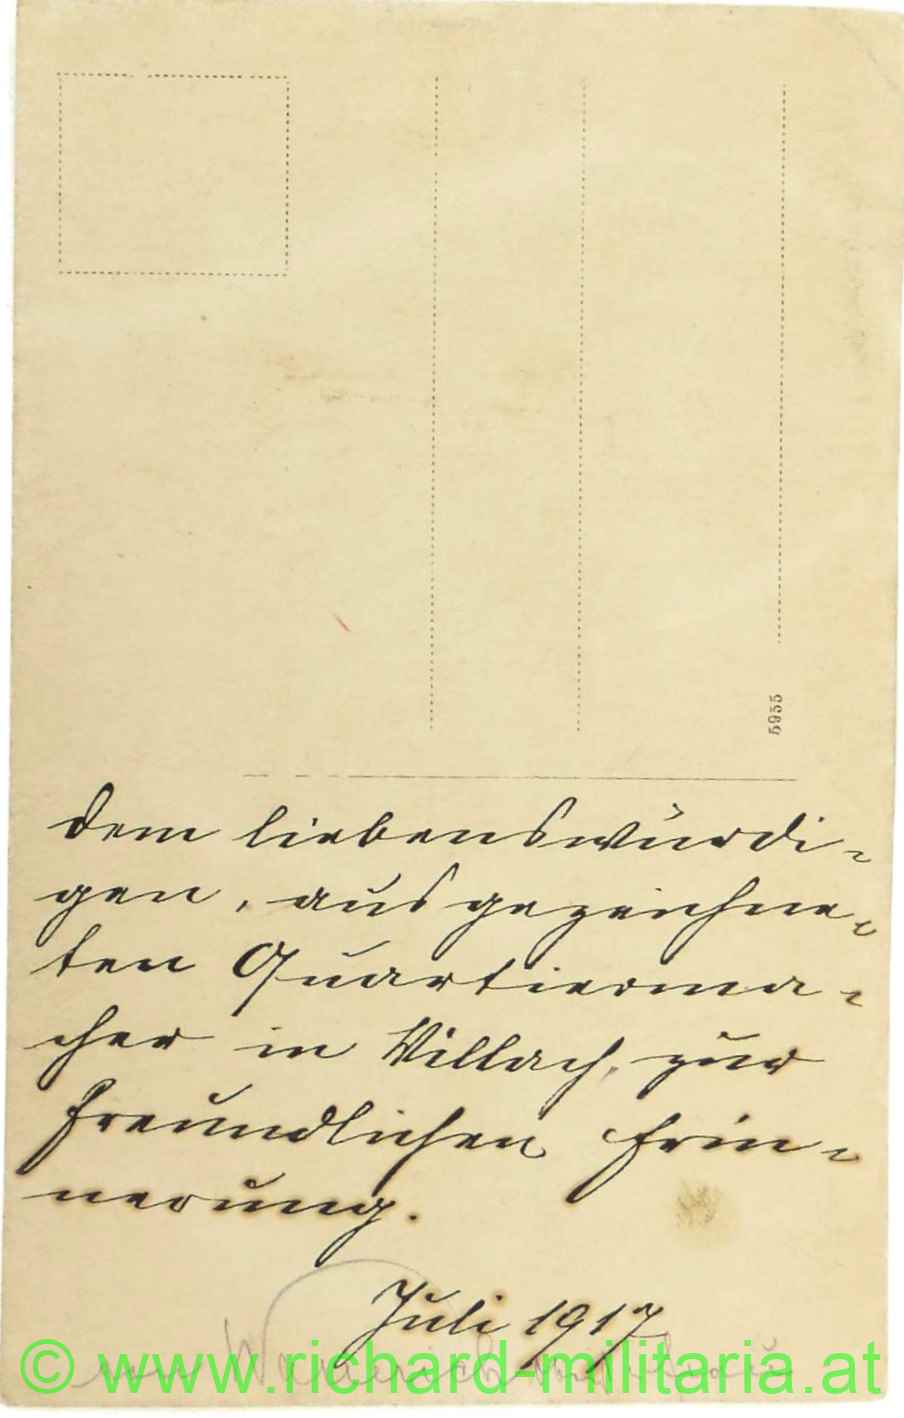 5955
dem liebenswürdi-
gen, ausgezeichne-
ten Quartierma-
cher in Villach, zur
freundlichen Erin-
nerung.
Juli 1917
© www.richard-militaria.at